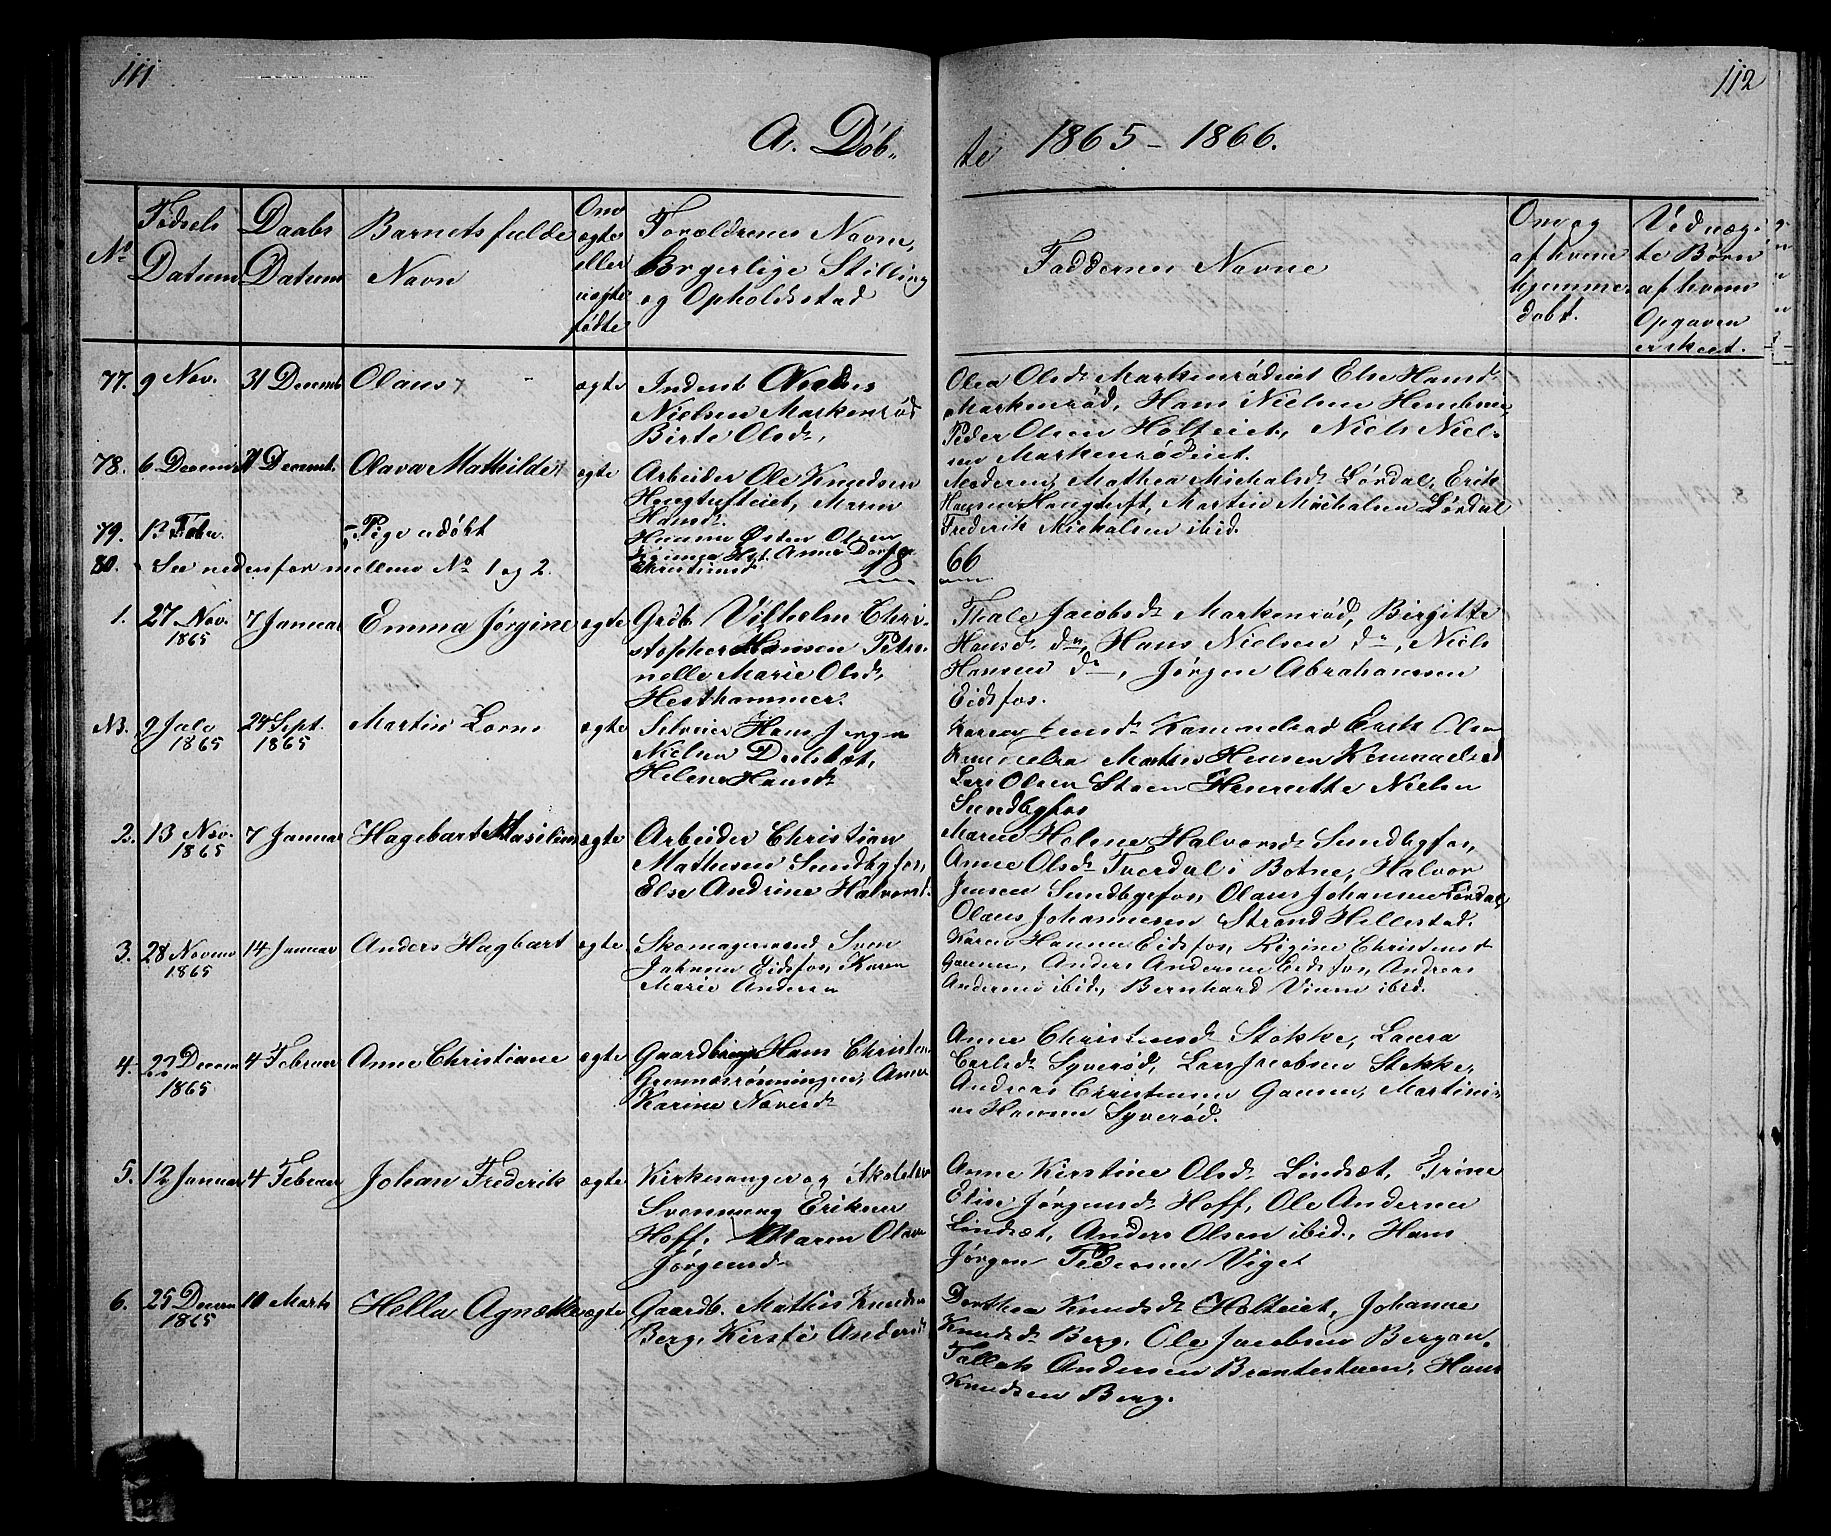 111
112
A. Döb-
te 1865-1866.
No
Fødsels Datum
Daabs Datum
Barnets fulde Navn
Om ægte eller uægte fødte
Forældrenes Navne, Borgerlige Stilling og Opholdsstad
Faddernes Navne
Om og af hvem hjemme døbt.
Ved uægte Børn af hvem Opgaven er skeet.
77. 9 Nov. 31 Decemb Olaus ægte Inderst
Nielsen Markerød
Birte Olsdr,
Olea Olsdr Markerødeiet Else Hansdr
Markerød, Hans Nielsen
Peder Olsen Holteiet, Niels Niel-
sen Markerødeiet.
78. 6 Decemb 31 Decemb. Olava Mathilde ægte Arbeider Ole Knudsen
Haugtufteiet, Maren
Hansdr.
Moderen, Mathea Michalsdr Lørdal, Erik
Hansen Haugtuft, Martin Michalsen Lørdal
Frederik Michalsen ibid.
79. Pige udøbt
Østen Olsen
80. See nedenfor mellem No 1 og 2.
66
1. 27 Nov. 1865 7 Januar Emma Jørgine ægte Grdb. Vilhelm Chri-
stopher Hansen Petro-
nelle Marie Olsdr,
Hesthammer.
Thale Jacobsdr Markerød, Birgitte
Hansdr do, Hans Nielsen do, Niels
Hansen do, Jørgen Abrahamsen
Eidsfos.
NB. 9 Juli 1865 24 Sept. 1865 Martin Lorns ægte Selveier Hans Jørgen
Nielsen
Helene Hansdr
Erik Olsen
Lars Olsen Steen Henriette Nielsen
Sundbyfos
2. 13 Nov. 1865 7 Januar Hagebart Maxilian ægte Arbeider Christian
Mathesen Sundbyfos,
Else Andrine Halvorsdr.
Maren Helene Halvorsdr Sundbyfos,
Anne Olsdr Tverdal i Botne, Halvor
Jensen Sundbyefos, Olaus Johannesen
Olaus Johannesen Strand Hillestad.
3. 28 Novem 1865 14 Januar Anders Hagbart ægte Skomagersvend Sven
Johnsen Eidsfos, Karen
Marie Andersen
Karen Hansen Eidsfos, Regine Christensdr
Gaasen, Anders Andersen Eidsfos, Andreas
Andersen ibid., Bernhard ibid.
4. 22 Decem 1865 4 Februar Anne Christiane ægte Gaardbruger Hans Christen
Grennesrønningen, Anne
Karine
Anne Christensdr Stokke, Laura
Carlsdr Syverød, Lars Jacobsen Stokke,
Andreas Christensen Gaasen, Martini-
us Hansen Syverød.
5. 12 Januar 4 Februar Johan Frederik ægte Kirkesanger og Skolelærer
Svennung Eriksen
Hoff, Maren Olava
Jørgensdr
Anne Kirstine Olsdr Lindsæt, Trine
Elise Jørgensdr Hoff, Ole Andersen
Lindsæt, Anders Olsen ibid., Hans
Jørgen Pedersen Viget
6. 25 Decem 1865 11 Marts Hella Agnethe ægte Gaardb. Mathis Knudsen
Berg, Kirsti Andersdr
Dorthea Knudsdr Holteiet, Johanne
Knudsdr Berg, Ole Jacobsen Bergan,
Tollef Andersen Brantestuen, Hans
Knudsen Berg.